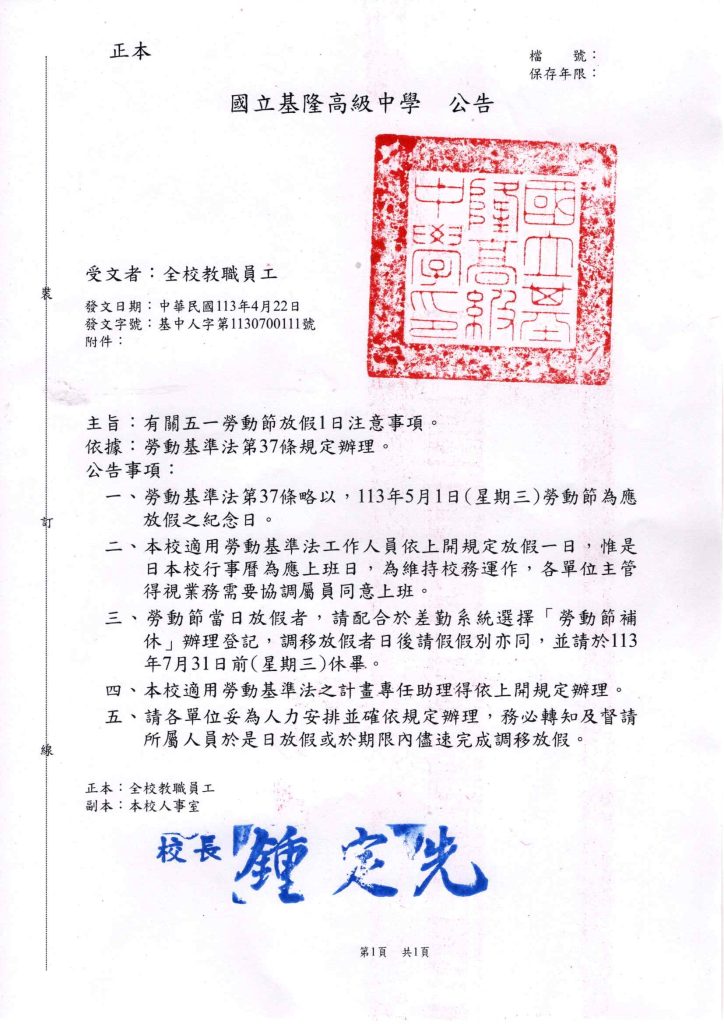 正本
檔　　號：
保存年限：
國立基隆高級中學　公告
國立基
隆高級
中學印
受文者：全校教職員工
發文日期：中華民國113年4月22日
發文字號：基中人字第1130700111號
附件：
主旨：有關五一勞動節放假1日注意事項。
依據：勞動基準法第37條規定辦理。
公告事項：
一、勞動基準法第37條略以，113年5月1日(星期三)勞動節為應
放假之紀念日。
二、本校適用勞動基準法工作人員依上開規定放假一日，惟是
日本校行事曆為應上班日，為維持校務運作，各單位主管
得視業務需要協調屬員同意上班。
三、勞動節當日放假者，請配合於差勤系統選擇「勞動節補
休」辦理登記，調移放假者日後請假假別亦同，並請於113
年7月31日前(星期三)休畢。
四、本校適用勞動基準法之計畫專任助理得依上開規定辦理。
五、請各單位妥為人力安排並確依規定辦理，務必轉知及督請
所屬人員於是日放假或於期限內儘速完成調移放假。
正本：全校教職員工
副本：本校人事室
校長 鍾定先
第1頁　共1頁
裝
訂
線